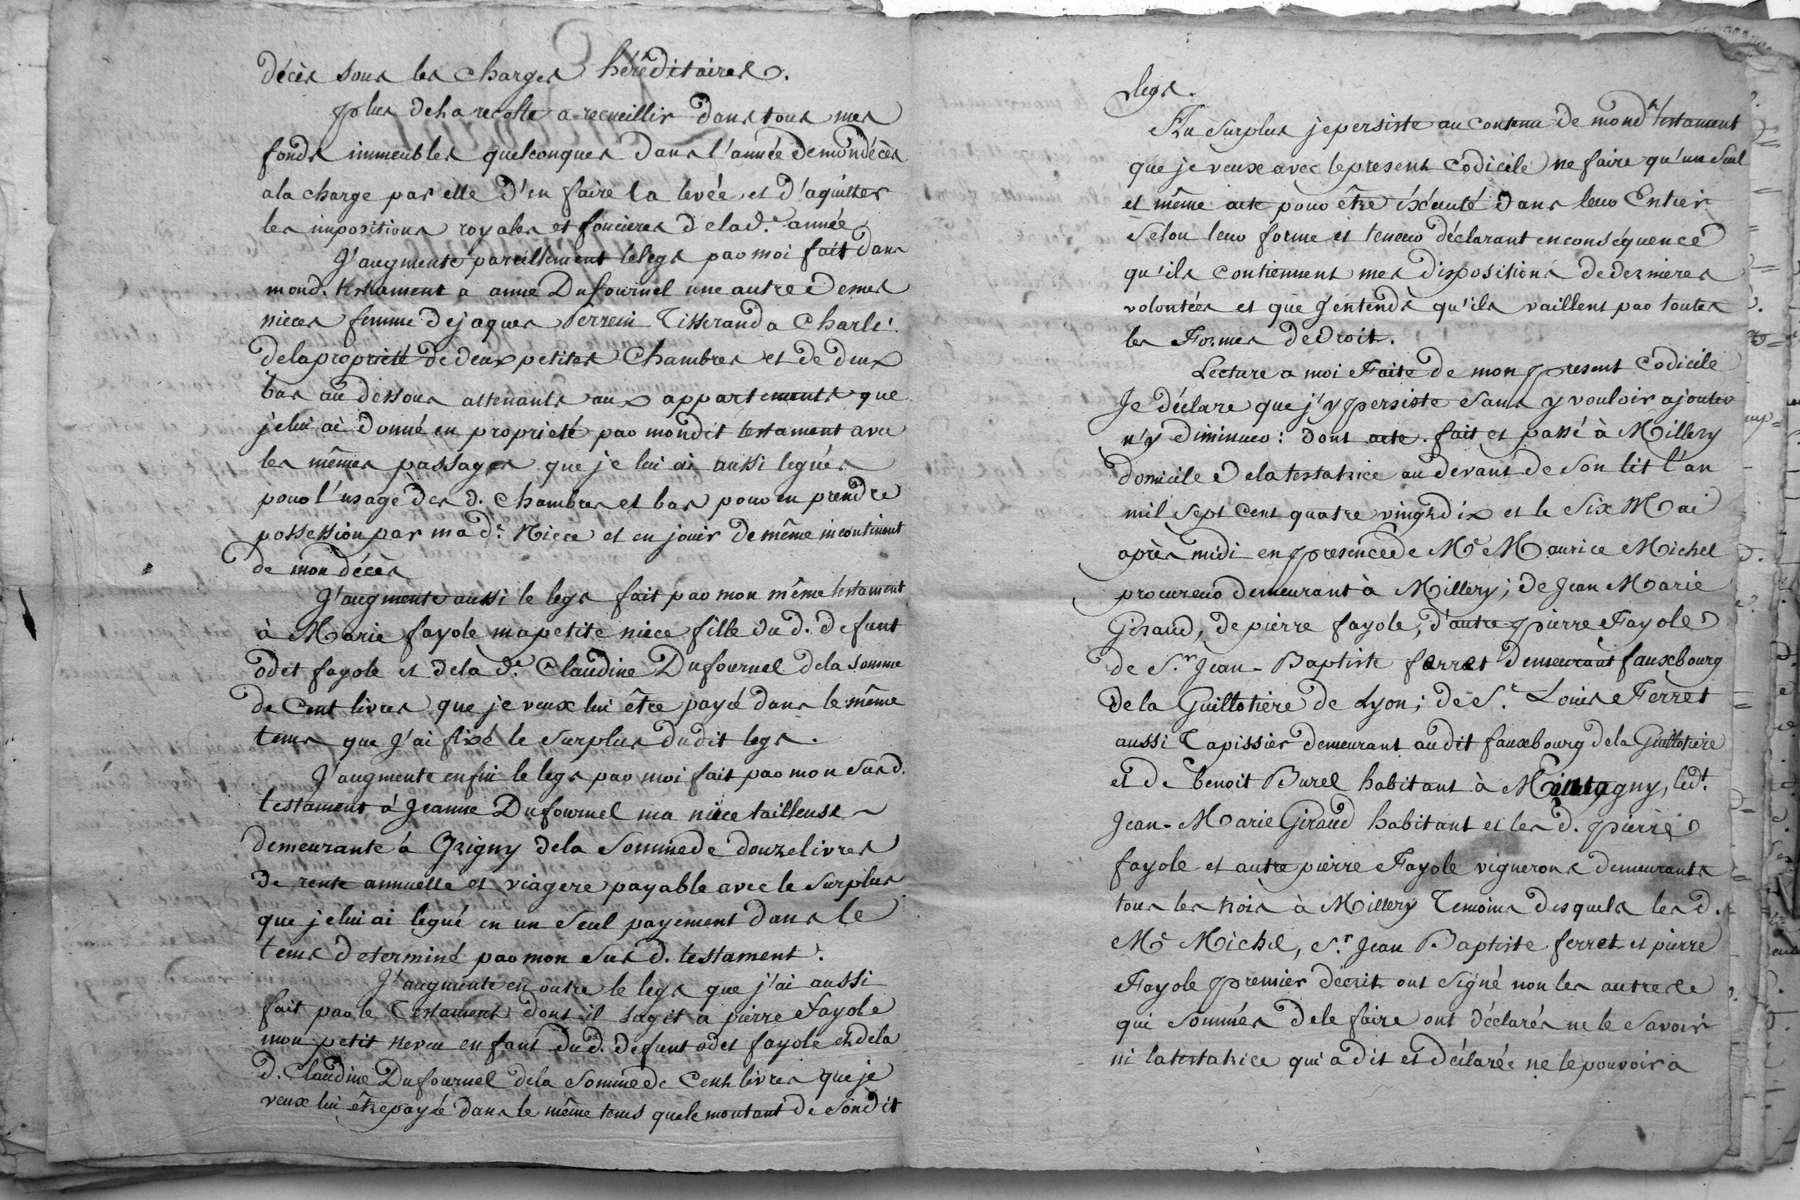 décès sous les charges héréditaires.
plus de la recolte a recueillir dans tous mes
fonds immeubles quelconques dans l'année de mon décès
a la charge par elle d'en faire la levée et d'aquitter
les impositions royales et foncieres de la d.e année
J'augmente pareillement le legs par moi fait dans
mond. testament a anne Dufournel une autre de mes
nieces femme de jaques Perrein Tisserand a Charli
de la proprieté de deux petites Chambres et de deux
bas au dessous attenants aux appartements que
je lui ai donné en proprieté par mondit testament avec
les mêmes passages que je lui ai aussi legués
pour l'usage des d. Chambres et bas pour en prendre
possession par mad.e Niece et en jouir de même incontinent
de mon décès
J'augmente aussi le legs fait par mon même testament
à Marie fayole ma petite niece fille du d. defunt
odet fayole et de la d.e Claudine Dufournel de la somme
de Cent livres que je veux lui être payé dans le même
tems que j'ai fixé le surplus dudit legs.
J'augmente enfin le legs par moi fait par mon susd.
testament à Jeanne Dufournel ma niece tailleuse ~
demeurante à Grigny de la Somme de douze livres
de rente annuelle et viagere payable avec le surplus
que je lui ai legué en un Seul payement dans le
tems determiné par mon Sus d. testament.
J'augmente en outre le legs que j'ai aussi
fait par le Testament dont il sagit a pierre Fayole
mon petit neveu enfant du d. defunt odet fayole et de la
d. Claudine Dufournel de la Somme de Cent livres que je
veux lui être payé dans le même tems que le montant de Sondit
legs.
Au surplus je persiste au contenu de mond.t testament
que je veux avec le present Codicile ne faire qu'un Seul
et même acte pour être éxécuté dans leur Entier
Selon leur forme et teneur déclarant en conséquence
qu'ils contiennent mes dispositions de dernieres
volontées et que j'entends qu'ils vaillent par toutes
les Formes de Droit.
Lecture a moi Faite de mon present Codicile
Je déclare que j'y persiste sans y vouloir ajouter
n'y diminuer: dont acte. fait et passé à Millery
domicile de la testatrice au devant de Son lit l'an
mil Sept Cent quatre vingt dix et le Six Mai
après midi en présence de Me Maurice Michel
procureur demeurant à Millery; de Jean Marie
Giraud, de pierre fayole, d'autre pierre Fayole
de S.r Jean-Baptiste ferret demeurant fauxbourg
de la Guillotiere de Lyon; de S.r Louis Ferret
aussi Tapissier demeurant audit fauxbourg de la Guillotiere
et de benoit Burel habitant à Montagny, led.t
Jean-Marie Giraud habitant et les d. pierre
fayole et autre pierre Fayole vignerons demeurants
tous les trois à Millery Temoins desquels les d.
Me Michel, S.r Jean Baptiste ferret et pierre
Fayole premier décrit ont Signé non les autres
qui Sommés de le faire ont déclarés ne le Savoir
ni la testatrice qui a dit et déclarée ne le pouvoir a